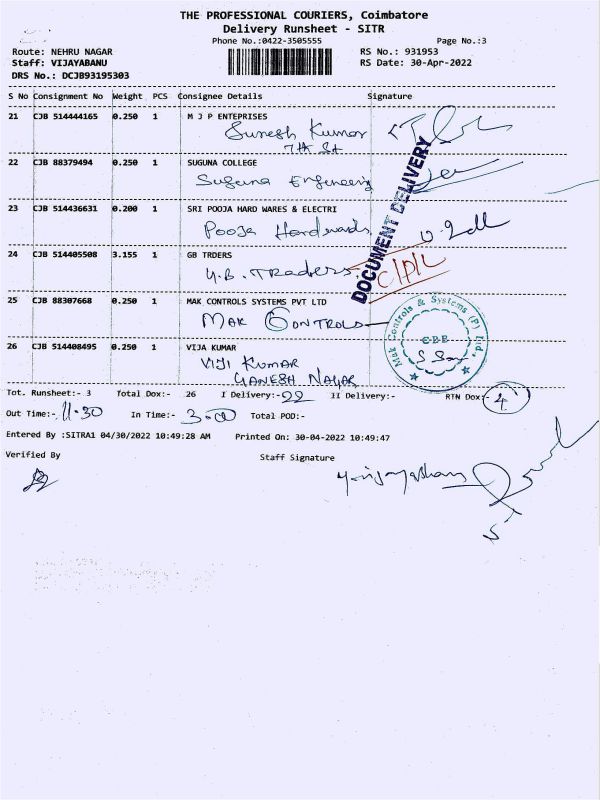 THE PROFESSIONAL COURIERS, Coimbatore
Delivery Runsheet - SITR
Phone No.:0422-3505555
Page No.:3
Route: NEHRU NAGAR
RS No.: 931953
Staff: VIJAYABANU
RS Date: 30-Apr-2022
DRS No.: DCJB93195303
S No Consignment No Weight PCS Consignee Details Signature
21 CJB 514444165 0.250 1 M J P ENTEPRISES
Suresh Kumar
7th St
22 CJB 88379494 0.250 1 SUGUNA COLLEGE
Suguna Engineering
23 CJB 514436631 0.200 1 SRI POOJA HARD WARES & ELECTRI
Pooja Hardwads
24 CJB 514405508 3.155 1 GB TRDERS
G.B. Traders
DOCUMENT DELIVERY
25 CJB 88307668 0.250 1 MAK CONTROLS SYSTEMS PVT LTD
MAK CONTROLS
Mak Controls & Systems (P) Ltd.,
CBE
26 CJB 514408495 0.250 1 VIJA KUMAR
VIJI KUMAR
GANESH NAGAR
Tot. Runsheet:- 3 Total Dox:- 26 I Delivery:- 22 II Delivery:- RTN Dox:- 4
Out Time:- 11-30 In Time:- 3-00 Total POD:-
Entered By :SITRA1 04/30/2022 10:49:28 AM Printed On: 30-04-2022 10:49:47
Verified By
Staff Signature